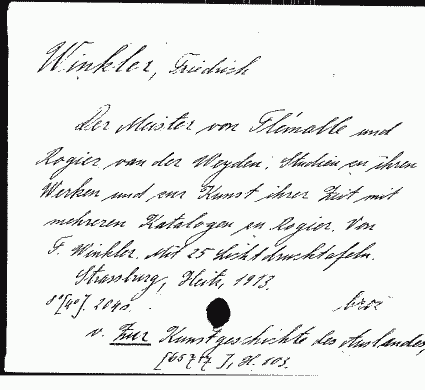 Winkler, Friedrich
Der Meister von Flémalle und
Rogier van der Weyden. Studien zu ihren
Werken und zur Kunst ihrer Zeit mit
mehreren Katalogen zu Rogier. Von
F. Winkler. Mit 25 Lichtdrucktafeln.
Strassburg, Heitz, 1913.
8°[4°]. 204 s.
v. Zur Kunstgeschichte des Auslandes,
H. 103.